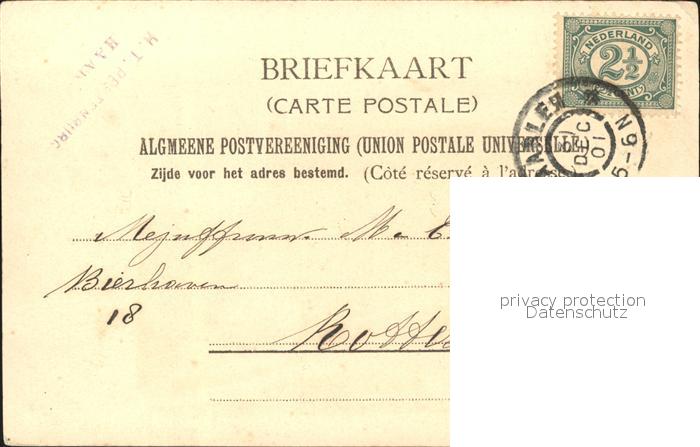 BRIEFKAART
(CARTE POSTALE)
ALGMEENE POSTVEREENIGING (UNION POSTALE UNIVERSELLE)
Zijde voor het adres bestemd. (Côté réservé à l'adresse)
NEDERLAND
2½
CENT
HAARLEM
DEC
01
Mejuffrouw M. C
Bierhaven
18
Rotte
privacy protection
Datenschutz